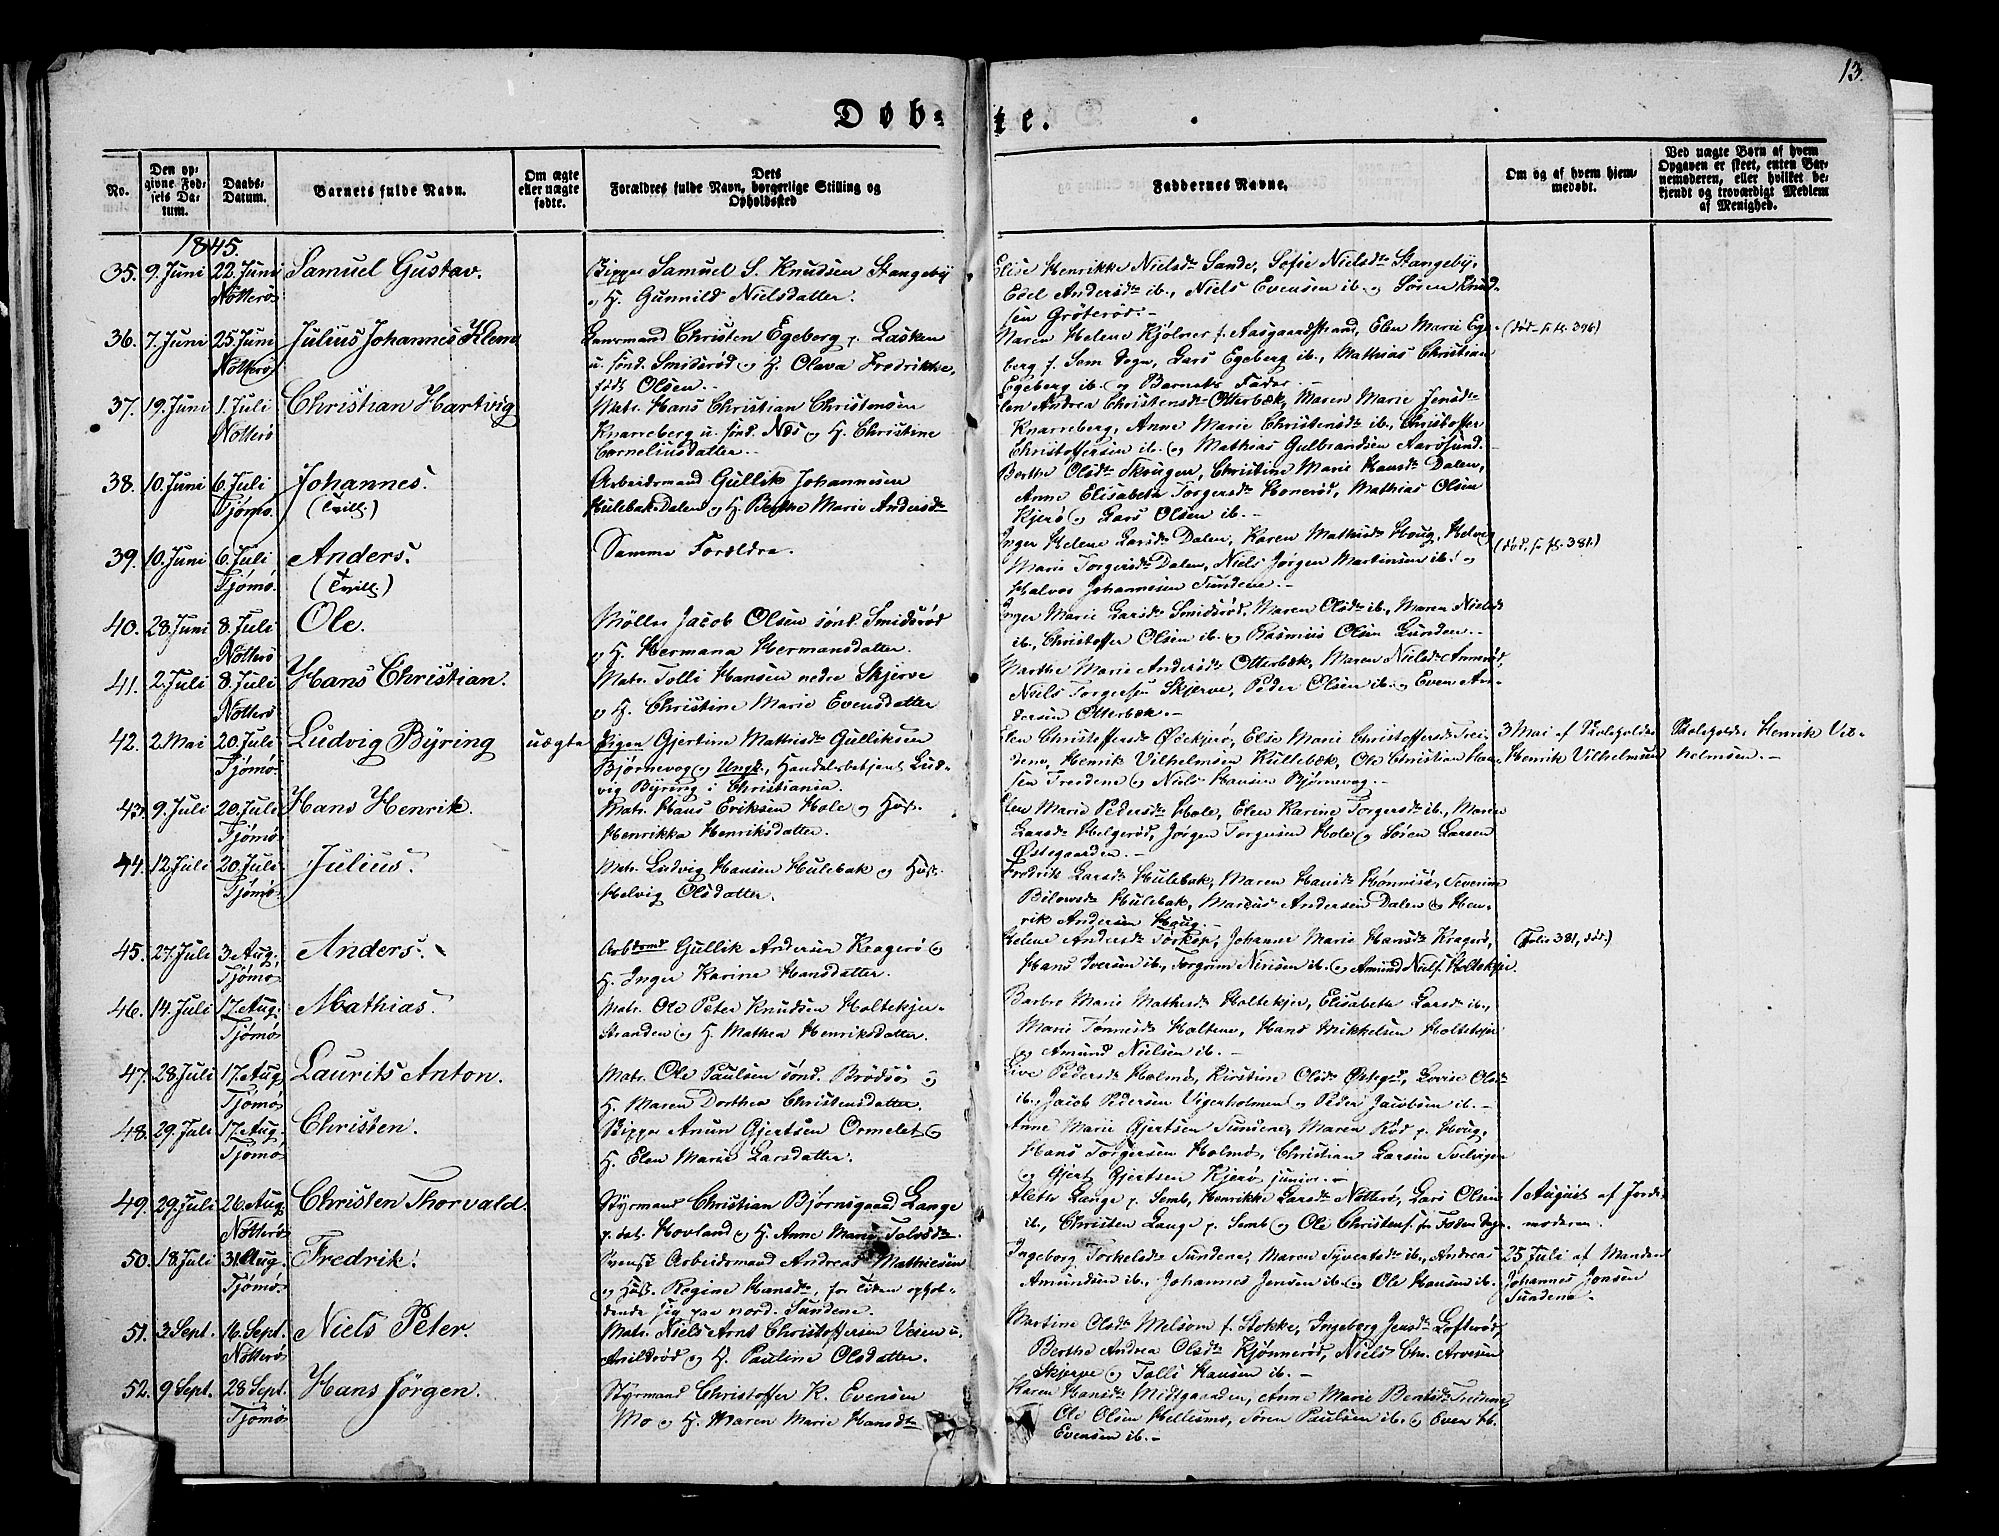 13.
Døb-te.
No.
Den opgivne Fødsels Datum.
Daabs-Datum.
Barnets fulde Navn.
Om ægte eller uægte fødte.
Dets Forældres fulde Navn, borgerlige Stilling og Opholdssted
Faddernes Navne.
Om og af hvem hjemmedøbt.
Ved uægte Børn af hvem Opgaven er skeet, enten Barnemoderen, eller hvilket bekjendt og troværdigt Medlem af Menighed.
1845.
35. 9. Juni 22. Juni Nötterö Samuel Gustav.
Samuel S. Knudsen Stangeby
og H. Gunnild Nielsdatter.
Elise Henrikke Nielsdr Sande, Sofie Nielsdr Stangeby,
Edel Andersdr ib., Niels Evensen ib. og Sören Knud-
sen Gröteröd.-
36. 7. Juni 25. Juni Nötterö Julius Johannes Klem
Gaarmand Christen Egeberg p. Basken
u. sönd. Smidsröd og H. Olava Fredrikke,
födt Olsen.-
Maren Helene Kjölner f. Aasgaardstrand, Elen Marie Ege-
berg f. Sem Sogn, Lars Egeberg ib., Mathias Christian
Egeberg ib. og Barnets Fader.-
(död. f. fs. 376)
37. 19. Juni 1. Juli Nötterö Christian Hartvig
Matr. Hans Christian Christensen
Knarreberg u. sönd. Næs og H. Christine
Corneliusdatter.-
Elen Andrea Christensdr Otterbæk, Maren Marie Jensdr
Knarreberg, Anne Marie Christensdr ib., Christoffer
Christoffersen ib. og Mathias Gulbrandsen Aarösund.
38. 10. Juni 6. Juli Tjömö. Johannes. (Tvill.)
Arbeidsmand Gullik Johannesen
Hulebak Dalen og H. Berthe Marie Andersdr
Berthe Olsdr Skougen, Christine Marie Hansdr Dalen,
Anne Elisabeth Torgersdr Honeröd, Mathias Olsen
Kjerö og Lars Olsen ib.-
39. 10. Juni 6. Juli Tjömö. Anders. (Tvill.)
Samme Forældre.
Inger Helene Larsdr Dalen, Karen Mathisdr Houg, Helvig
Marie Torgersdr Dalen, Niels Jörgen Martinsen ib. og
Halvor Johannesen Sundene.-
(död. f. fs. 381.)
40. 28. Juni 8. Juli Nötterö Ole.
Möller Jacob Olsen sönd. Smidsröd
og H. Hermana Hermansdatter.
Inger Marie Larsdr Smidsröd, Maren Olsdr ib., Maren Nielsdr
ib., Christoffer Olsen ib. og Rasmus Olsen Lunden.-
41. 2. Juli 8. Juli Nötterö Hans Christian.
Matr. Tolli Hansen nedre Skjerve
og H. Christine Marie Evensdatter
Marthe Marie Andersdr Otterbæk, Maren Nielsdr Anneröd,
Niels Torgersen Skjerve, Peder Olsen ib. og Even An-
dersen Otterbæk.-
42. 2. Mai 20. Juli Tjömö. Ludvig Byring uægte
Pigen Gjertine Mathisdr Gulliksen
Björnevog og Ungk., Handelsbetjent Lud-
vig Byring i Christiania.
Elen Christoffersdr Ödekjerö, Else Marie Christoffersdr Tre-
dene, Henrik Vilhelmsen Kullebæk, Ole Christian Han-
sen Treedene og Niels Hansen Björnevog.-
3 Mai af Skoleholder
Henrik Vilhelmsen
Skolehold. Henrik Vil-
helmsen.-
43. 9. Juli 20. Juli Tjömö Hans Henrik.
Matr. Hans Eriksen Hole og Hus.
Henrikka Henriksdatter.
Elen Marie Pedersdr Hole, Elen Karine Torgersdr ib., Maren
Larsdr Helgeröd, Jörgen Torgersen Hole og Sören Larsen
Östegaarden.-
44. 12. Juli 20. Juli Tjömö Julius.
Matr. Ludvig Hansen Hulebak og Hus.
Helvig Olsdatter.
Fredrik Larsdr Hulebak, Maren Hansdr Hönnise, Severine
Hulebak, Marcus Andersen Dalen og Hen-
rik Andersen Houg.
45. 27. Juli 3. Aug. Tjömö Anders.
Arbdsmd Gullik Andersen Kragerö og
H. Inger Karine Hansdatter.
Helene Andersdr Torkop, Johanne Marie Hansdr Kragerö,
Hans Iversen ib., ib. og Amund Niels. Holtekjer.
(Folio 381, död.)
46. 14. Juli 17. Aug. Tjömö Mathias.
Matr. Ole Peter Knudsen Holtekjer-
stranden og H. Mathea Henriksdatter.
Barbro Marie Mathisdr Holtekjer, Elisabeth Larsdr ib.,
Marie Tönnesdr Holtene, Hans Mikkelsen Holtekjer
og Amund Nielsen ib.-
47. 28. Juli 17. Aug Tjömö Laurits Anton.
Matr. Ole Paulsen sönd. Brödsö og
H. Maren Dorthea Christensdatter.
Live Pedersdr Holmö, Kirstine Olsdr Östegd., Lovise Olsdr
ib., Jacob Pedersen Vigerholmen og Peder Jacobsen ib.-
48. 29. Juli 17. Aug. Tjömö Christen.
Skipper Anun Gjertsen Ormelet og
H. Elen Marie Larsdatter.
Anne Marie Gjertsen Sundene, Maren Röd p. Houg,
Hans Torgersen Holmö, Christian Larsen Svelvigen
og Gjert Gjertsen Kjerö junior.-
49. 29. Juli 26. Aug Nötterö Christen Thorvald.
Styrmand Christian Björnsgaard Lange
p. Hovland og H. Anne Marie
Alette Lange p. Semb, Henrikke Larsdr Nötterö, Lars Olsen
ib., Christen Lange p. Semb og Ole Christens. for Faderen
1 August af Jorde-
moderen.
50. 18. Juli 31. Aug. Tjömö Fredrik.
Svensk Arbeidsmand Andreas Mathiesen
og Hus. Regine Hansdr, for Tiden ophol-
dende sig paa nord. Sundene.
Ingeborg Torkelsdr Sundene, Maren Syvertsdr ib., Andreas
Amundsen ib., Johannes Jensen ib. og Ole Hansen ib.
25 Juli af Manden
Johannes Jensen
Sundene.
51. 3. Sept. 16. Sept. Nötterö Niels Peter.
Matr. Niels Arnt Christoffersen Veien u.
Arildröd og H. Pauline Olsdatter.
Martine Olsdr Melsom f. Stokke, Ingeborg Jensdr Lofteröd,
Berthe Andrea Olsdr Kjönneröd, Niels Chr. Arvesen
Skjerve og Tolli Hansen ib.-
52. 9. Sept. 28. Sept. Tjömö Hans Jörgen.
Styrmand Christoffer K. Evensen
Mo og H. Maren Marie Hansdr
Karen Hansdr Midtgaarden, Anne Marie Berntsdr Tredene,
Ole Olsen Hellumö, Sören Paulsen ib. og Even H.
Evensen ib.-